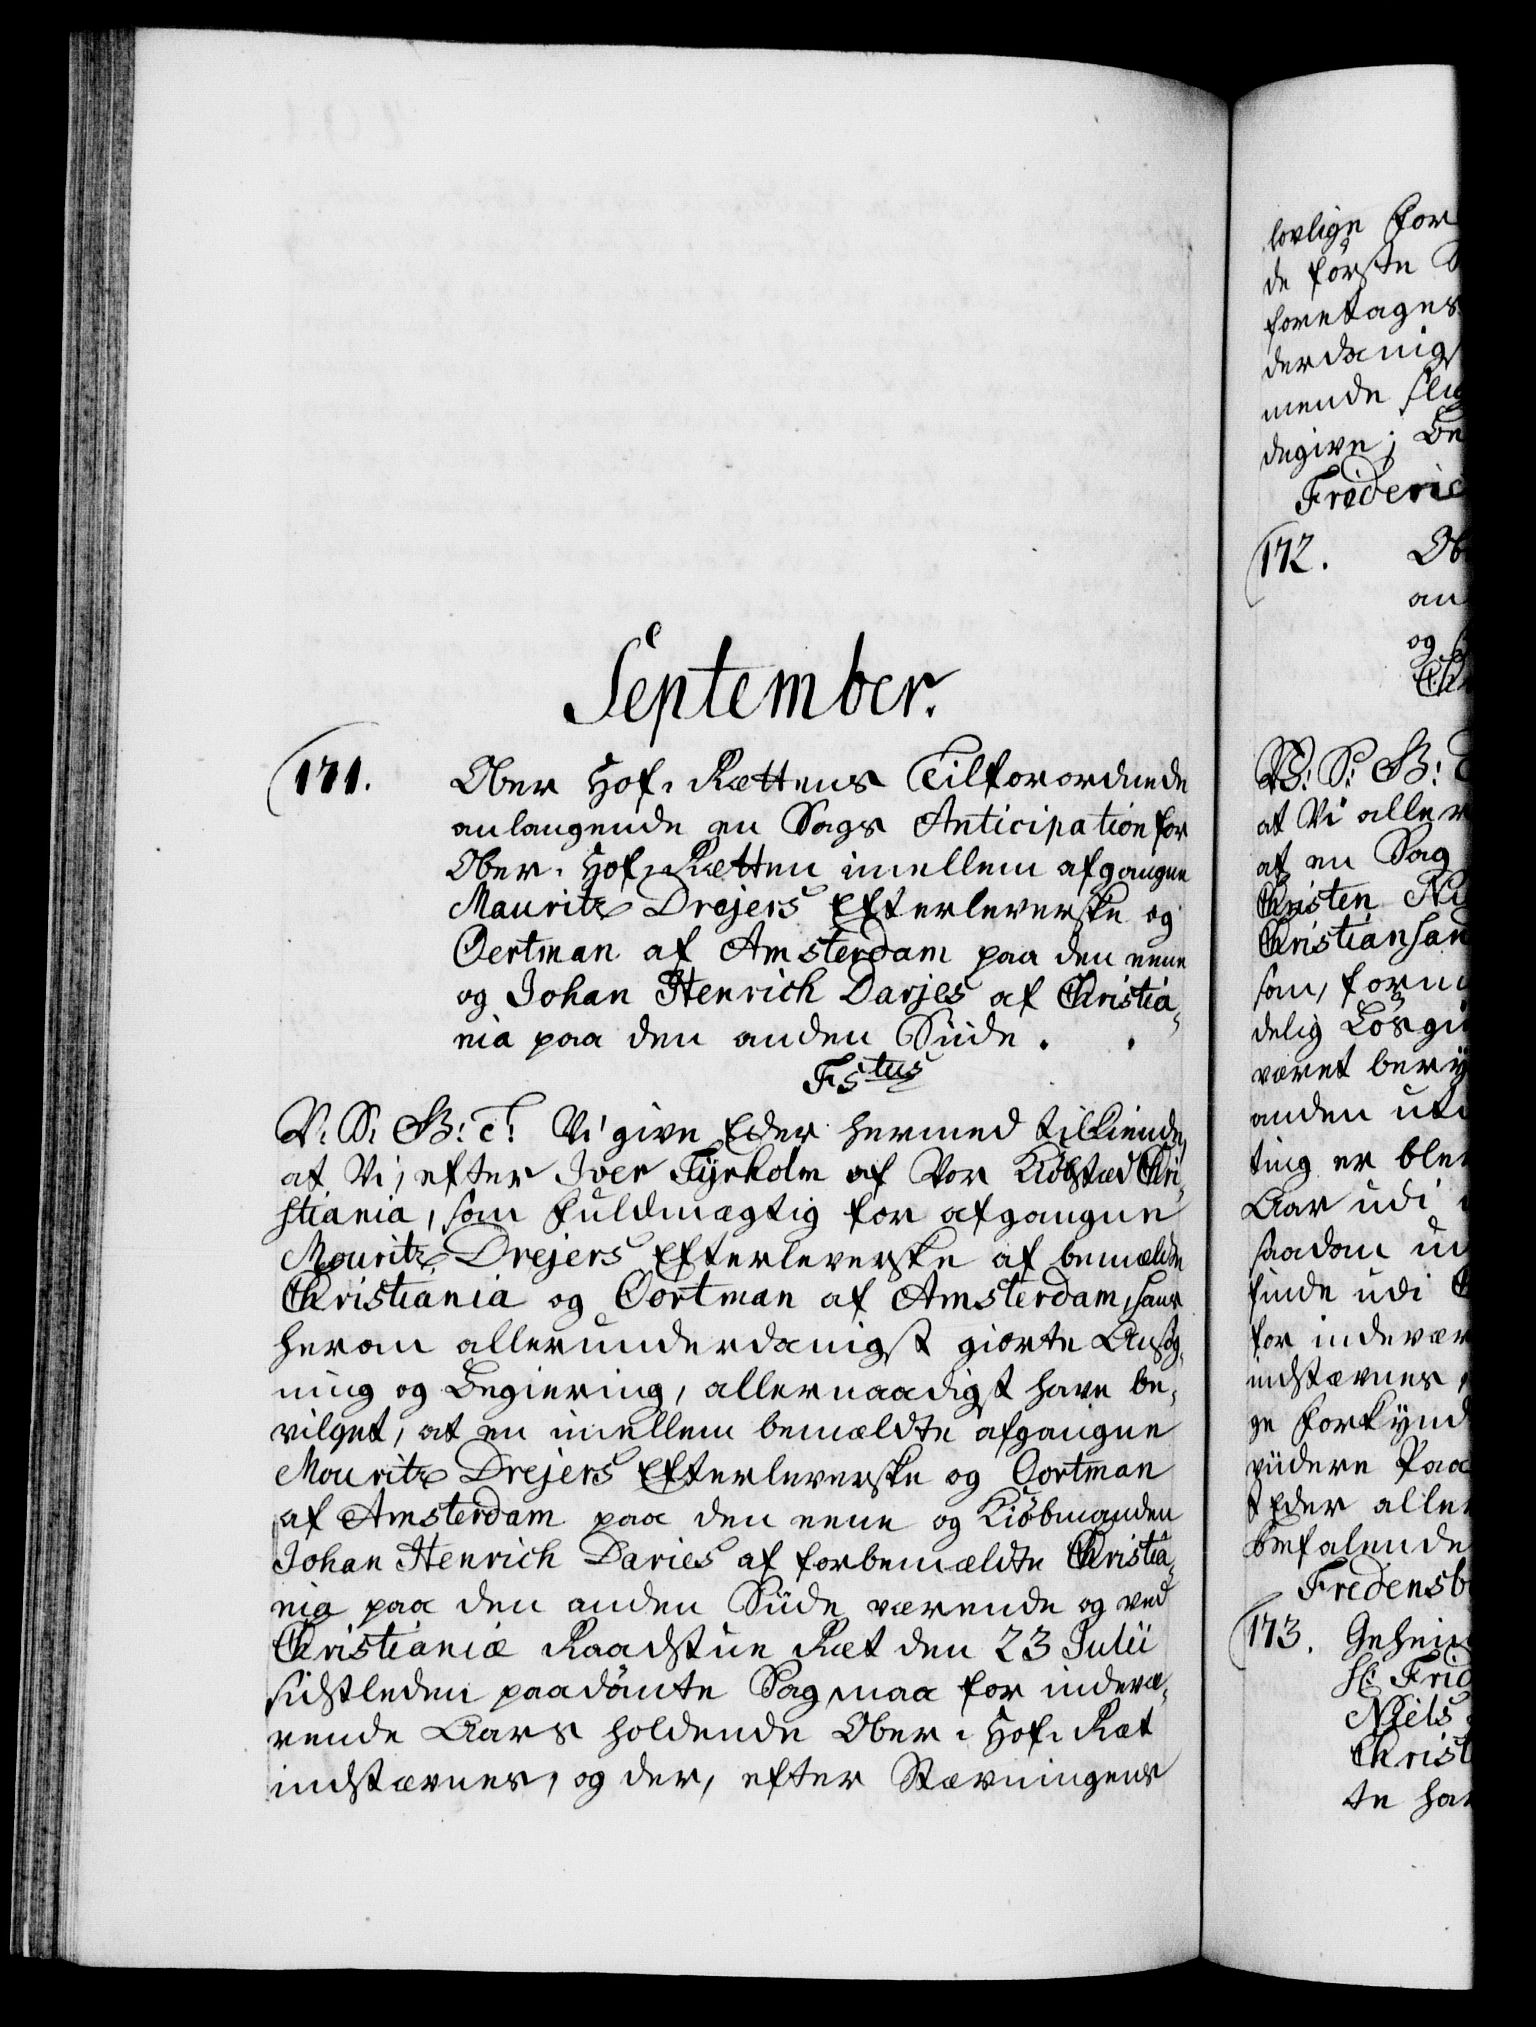 September.
171.
Ober Hof-Rettens Tilforordnede
anlangende en Sags Anticipation for
Ober-Hof-Retten imellem afgangne
Mauritz Drejers Efterleverske og
Oertman af Amsterdam paa den eene
og Johan Henrich Darjes af Christia-
nia paa den anden Siide.
Fstus
V. S. G: T: Vi give Eder hermed tilkiende,
at Vi, efter Iver Tyrholm af Vor Kiöbstæd Chri-
stiania, som fuldmægtig for afgangne
Mouritz Drejers Efterleverske af bemælte
Christiania og Oortman af Amsterdam, hans
herom allerunderdanigst giorte Ansög-
ning og Begiering, allernaadigst have be-
vilget, at en imellem bemældte afgangne
Mouritz Drejers Efterleverske og Oortman
af Amsterdam paa den eene og Kiöbmanden
Johan Henrich Daries af forbemældte Christia-
nia paa den anden Siide værende og ved
Christianiæ Raadstue Ret den 23 Julii
sidstleden paadömte Sag, maa for indevæ-
rende Aars holdende Ober-Hof-Ret
indstævnes, og der, efter Stævningens
lovlige For
de förste
foretages
derdanigst
mende
degive; Be
Frideric
172.
Ob
an
og
Chr
V: S: G: T
at Vi aller
af en Sag
Christen Ni
Christiansan
son, form
delig Lösgi
været bery
anden ud
ting er blev
Aar udi
saadan
finde udi
for indevær
indstævnes
ge Forkynd
viidere Paa
Eder aller
Befalende
Fredensb
173. Geheim
Hr Frid
Niels
Christ
te har